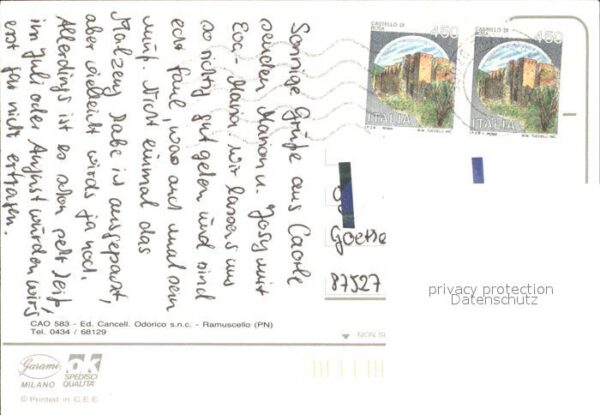 Sonnige Grüße aus Caorle
senden Marion u. Josy mit
Eva-Maria. Wir lassen's uns
so richtig gut gehen und sind
echt faul, was auch mal sein
muß. Nicht einmal das
Malzeug habe ich ausgepackt,
aber vielleicht wird's ja noch.
Allerdings ist es schon sehr heiß,
im Juli oder August würden wir's
erst gar nicht ertragen.
CASTELLO DI
ROSA
450
ITALIA
CASTELLO DI
ROSA
450
ITALIA
Goethe
87527
privacy protection
Datenschutz
CAO 583 - Ed. Cancell. Odorico s.n.c. - Ramuscello (PN)
Tel. 0434 / 68129
NON
Garami
MILANO
OK
SPEDISCI
QUALITÀ
© Printed in C.E.E.